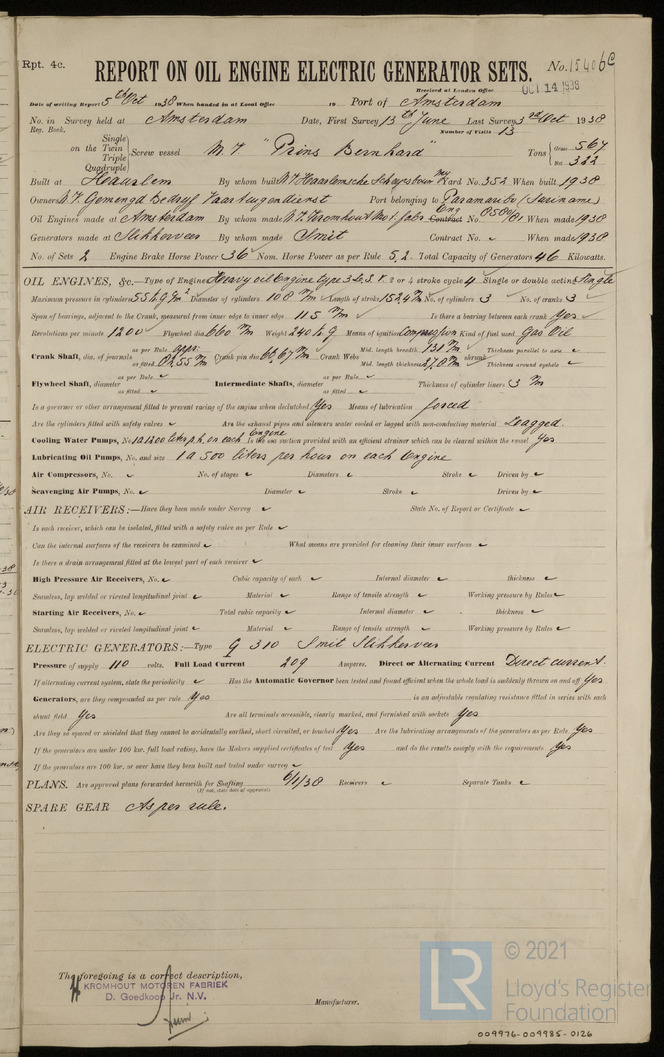 Rpt. 4c.
No. 15406c
REPORT ON OIL ENGINE ELECTRIC GENERATOR SETS.
Received at London Office
OCT 14 1938
Date of writing Report 5th Oct 1938 When handed in at Local Office 19 Port of Amsterdam
No. in Survey held at Amsterdam Date, First Survey 13th June Last Survey 3rd Oct 1938
Reg. Book.
Number of Visits 13
Single
on the Twin
Triple
Quadruple
Screw vessel M.V. "Prins Bernhard"
Tons Gross 567
Net 322
Built at Haarlem By whom built N.V. Haarlemsche Scheepsbouw My Yard No. 352 When built 1938
Owners N.V. Gemengd Bedryf Vaartuigendienst Port belonging to Paramaribo (Suriname)
Oil Engines made at Amsterdam By whom made N.V. Kromhout Mot. fabr. Eng Contract No. When made 1938
Generators made at Slikkerveer By whom made Smit Contract No. When made 1938
No. of Sets 2 Engine Brake Horse Power 36 Nom. Horse Power as per Rule 5,2 Total Capacity of Generators 46 Kilowatts.
OIL ENGINES, &c.—Type of Engine Heavy oil Engine type 3 2 or 4 stroke cycle 4 Single or double acting Single
Maximum pressure in cylinders 55 kg/m² Diameter of cylinders 108 m/m Length of stroke 152,4 m/m No. of cylinders 3 No. of cranks 3
Span of bearings, adjacent to the Crank, measured from inner edge to inner edge 115 m/m Is there a bearing between each crank Yes
Revolutions per minute 1200 Flywheel dia. 660 m/m Weight 240 kg Means of ignition Compression Kind of fuel used Gas Oil
Crank Shaft, dia. of journals as per Rule appr. as fitted 82,55 m/m Crank pin dia. 66,67 m/m Crank Webs Mid. length breadth 131 m/m Mid. length thickness 27,8 m/m shrunk Thickness parallel to axis Thickness around eyehole
Flywheel Shaft, diameter as per Rule as fitted Intermediate Shafts, diameter as per Rule as fitted Thickness of cylinder liners 3 m/m
Is a governor or other arrangement fitted to prevent racing of the engine when declutched Yes Means of lubrication forced
Are the cylinders fitted with safety valves Are the exhaust pipes and silencers water cooled or lagged with non-conducting material Leagged.
Cooling Water Pumps, No. 1 a 1200 liters p.h. on each Engine Is the sea suction provided with an efficient strainer which can be cleared within the vessel Yes
Lubricating Oil Pumps, No. and size 1 a 500 liters per hour on each Engine
Air Compressors, No. No. of stages Diameters Stroke Driven by
Scavenging Air Pumps, No. Diameter Stroke Driven by
AIR RECEIVERS:—Have they been made under Survey State No. of Report or Certificate
Is each receiver, which can be isolated, fitted with a safety valve as per Rule
Can the internal surfaces of the receivers be examined What means are provided for cleaning their inner surfaces
Is there a drain arrangement fitted at the lowest part of each receiver
High Pressure Air Receivers, No. Cubic capacity of each Internal diameter thickness
Seamless, lap welded or riveted longitudinal joint Material Range of tensile strength Working pressure by Rules
Starting Air Receivers, No. Total cubic capacity Internal diameter thickness
Seamless, lap welded or riveted longitudinal joint Material Range of tensile strength Working pressure by Rules
ELECTRIC GENERATORS:—Type G 310 Smit Slikkerveer
Pressure of supply 110 volts. Full Load Current 209 Amperes. Direct or Alternating Current Direct current.
If alternating current system, state the periodicity Has the Automatic Governor been tested and found efficient when the whole load is suddenly thrown on and off Yes
Generators, are they compounded as per rule Yes is an adjustable regulating resistance fitted in series with each
shunt field Yes Are all terminals accessible, clearly marked, and furnished with sockets Yes
Are they so spaced or shielded that they cannot be accidentally earthed, short circuited, or touched Yes Are the lubricating arrangements of the generators as per Rule Yes
If the generators are under 100 kw. full load rating, have the Makers supplied certificates of test Yes and do the results comply with the requirements Yes
If the generators are 100 kw. or over have they been built and tested under survey
PLANS. Are approved plans forwarded herewith for Shafting 6/1/38 Receivers Separate Tanks
(If not, state date of approval)
SPARE GEAR As per rule.
The foregoing is a correct description,
KROMHOUT MOTOREN FABRIEK
D. Goedkoop Jr. N.V.
Manufacturer.
LR
© 2021
Lloyd's Register
Foundation
009976-009985-0126